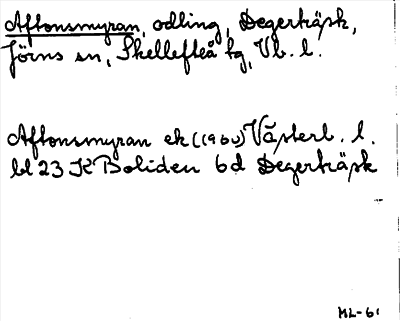 Aftonsmyran, odling, Degerträsk,
Jörns sn, Skellefteå tg, Vb. l.
Aftonsmyran ek (1960) Västerb. l.
bl 23 K Boliden 6d Degerträsk
ML-61